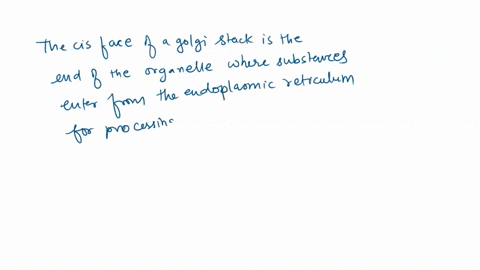 The cis face of a golgi stack is the
end of the organelle where substances
enter from the endoplaomic retrculum
for processing